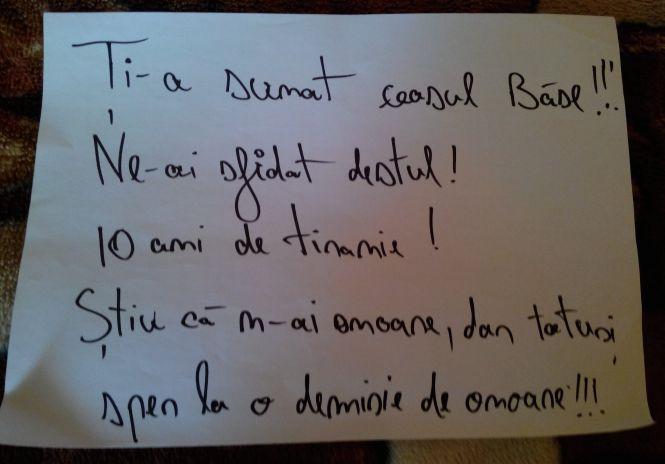 Ți-a sunat ceasul Băse!!!
Ne-ai sfidat destul!
10 ani de tiranie!
Știu că n-ai onoare, dar totuși
sper la o demisie de onoare!!!